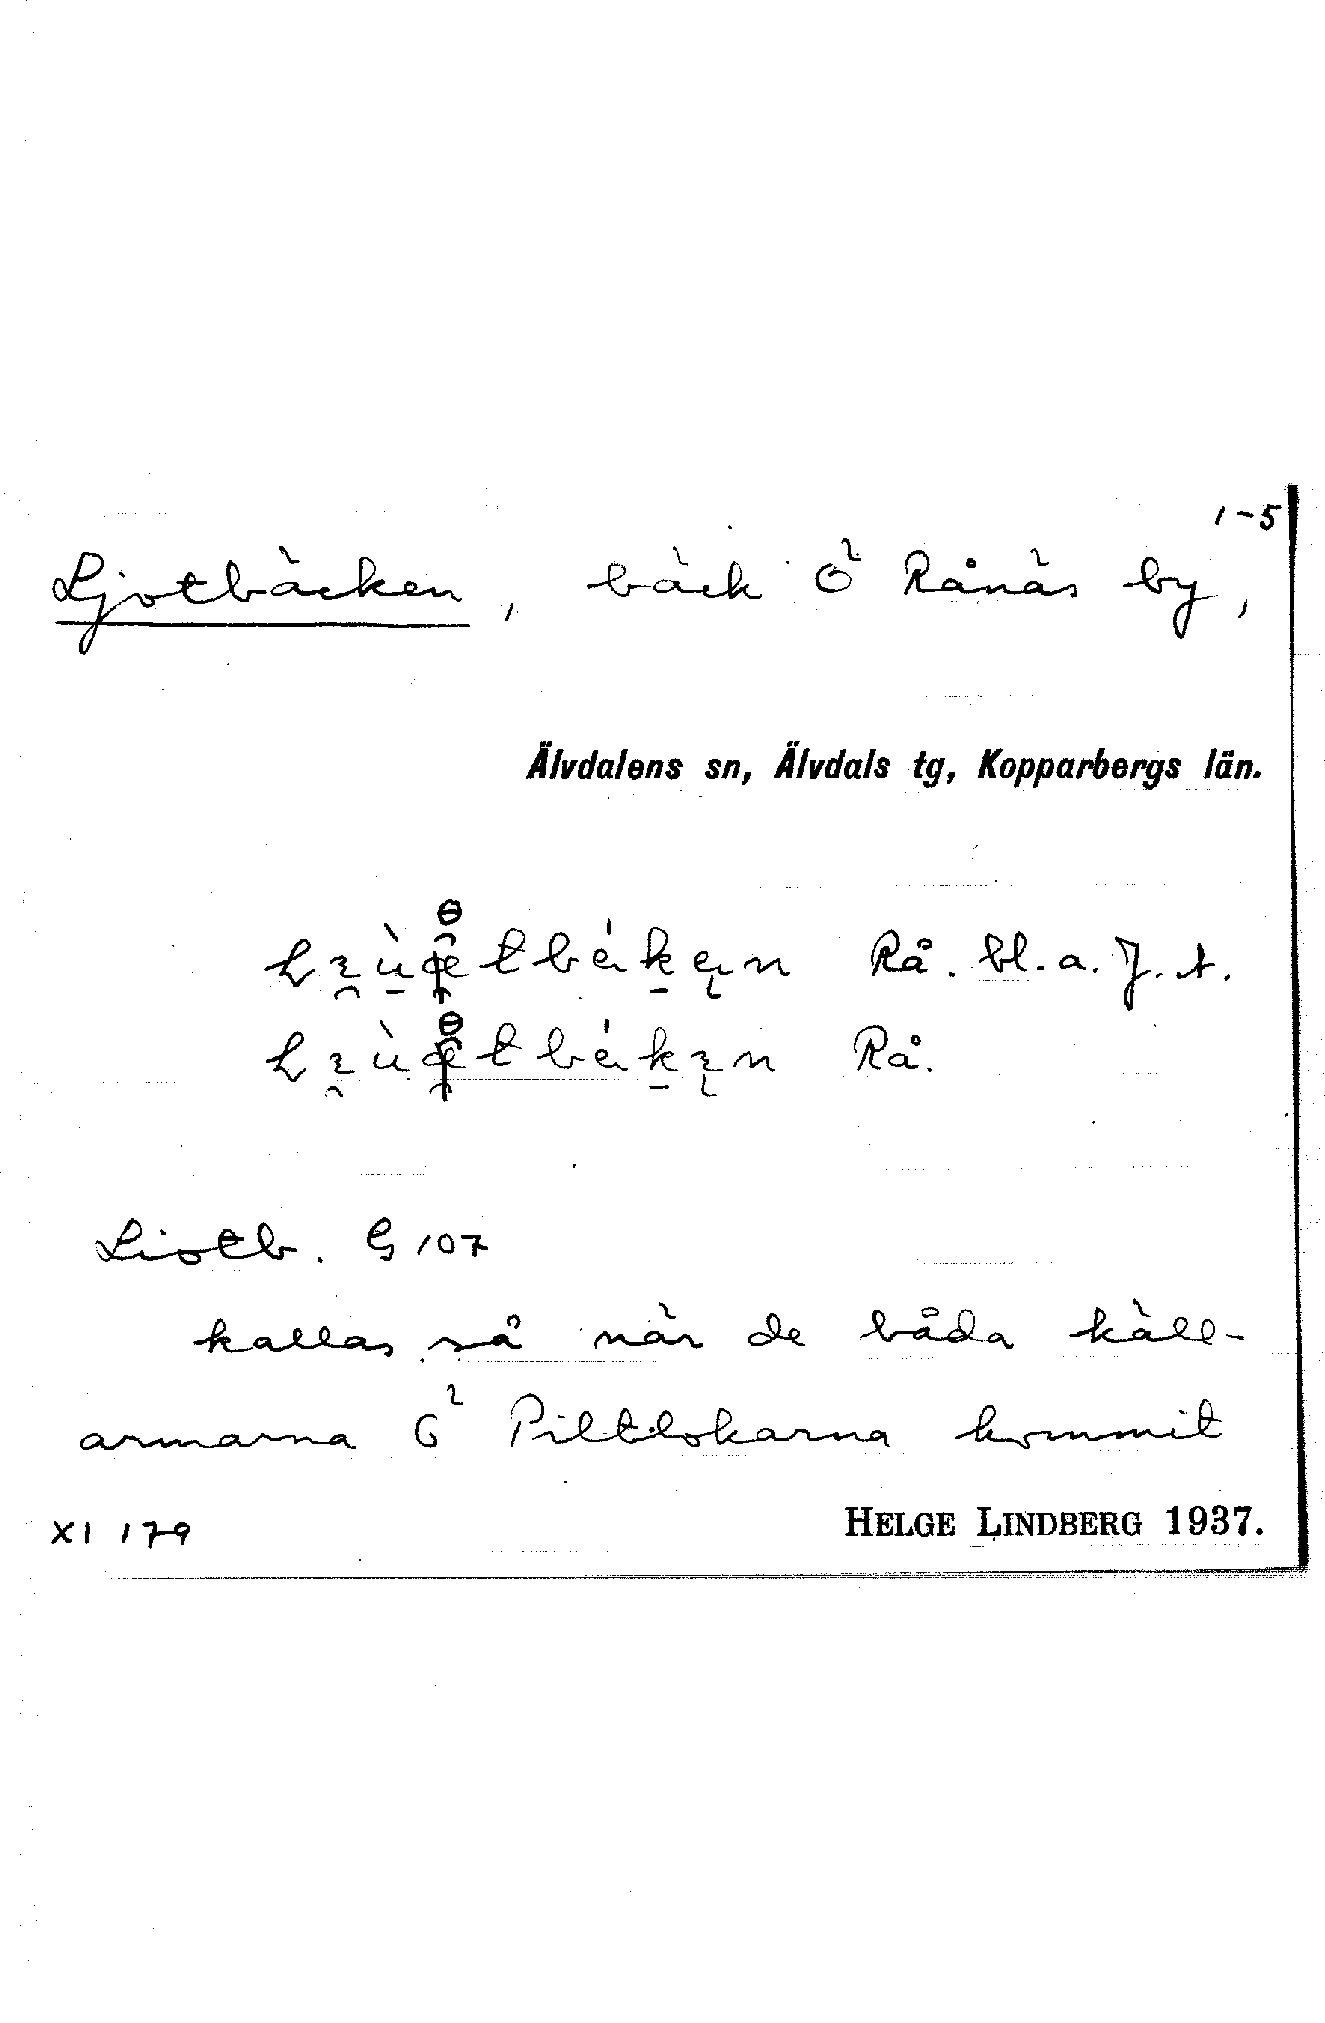 1-5
Ljotbäcken, bäck Ö Rånäs by,
Älvdalens sn, Älvdals tg, Kopparbergs län.
Rå. bl. a. J. A.
Rå.
Liotb. G 107
kallas så när de båda käll-
armarna Ö Piltlokarna kommit
XI 179
HELGE LINDBERG 1937.